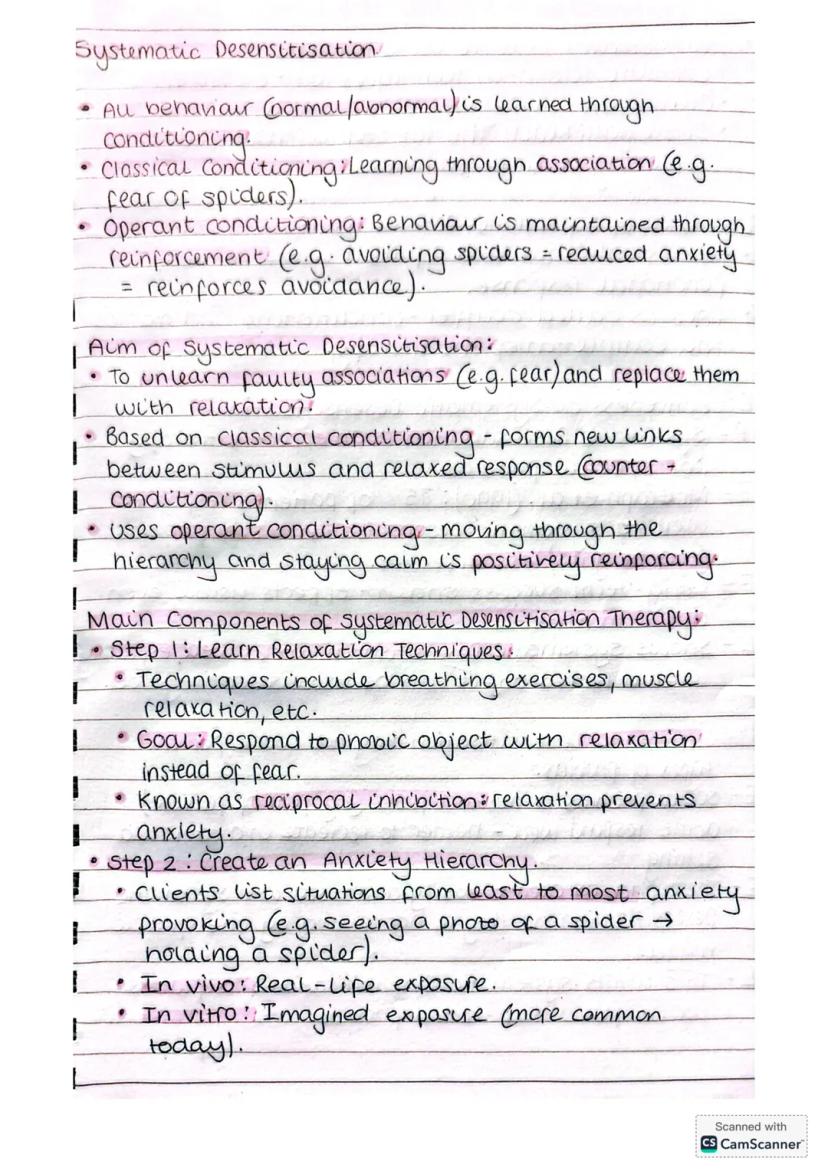 Systematic Desensitisation
• All behaviour (normal/abnormal) is learned through
conditioning.
• Classical Conditioning: Learning through association (e.g.
fear of spiders).
• Operant conditioning: Behaviour is maintained through
reinforcement (e.g. avoiding spiders = reduced anxiety
= reinforces avoidance).
Aim of Systematic Desensitisation:
• To unlearn faulty associations (e.g. fear) and replace them
with relaxation.
• Based on classical conditioning - forms new links
between stimulus and relaxed response (counter -
conditioning).
• Uses operant conditioning - moving through the
hierarchy and staying calm is positively reinforcing.
Main Components of Systematic Desensitisation Therapy:
• Step 1: Learn Relaxation Techniques:
• Techniques include breathing exercises, muscle
relaxation, etc.
• Goal: Respond to phobic object with relaxation
instead of fear.
• Known as reciprocal inhibition: relaxation prevents
anxiety.
• Step 2: Create an Anxiety Hierarchy.
• Clients list situations from least to most anxiety
provoking (e.g. seeing a photo of a spider →
holding a spider).
• In vivo: Real-life exposure.
• In vitro: Imagined exposure (more common
today).
Scanned with
CS CamScanner